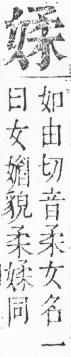 媃
如由切音柔女名一
曰女媚貌柔媃同